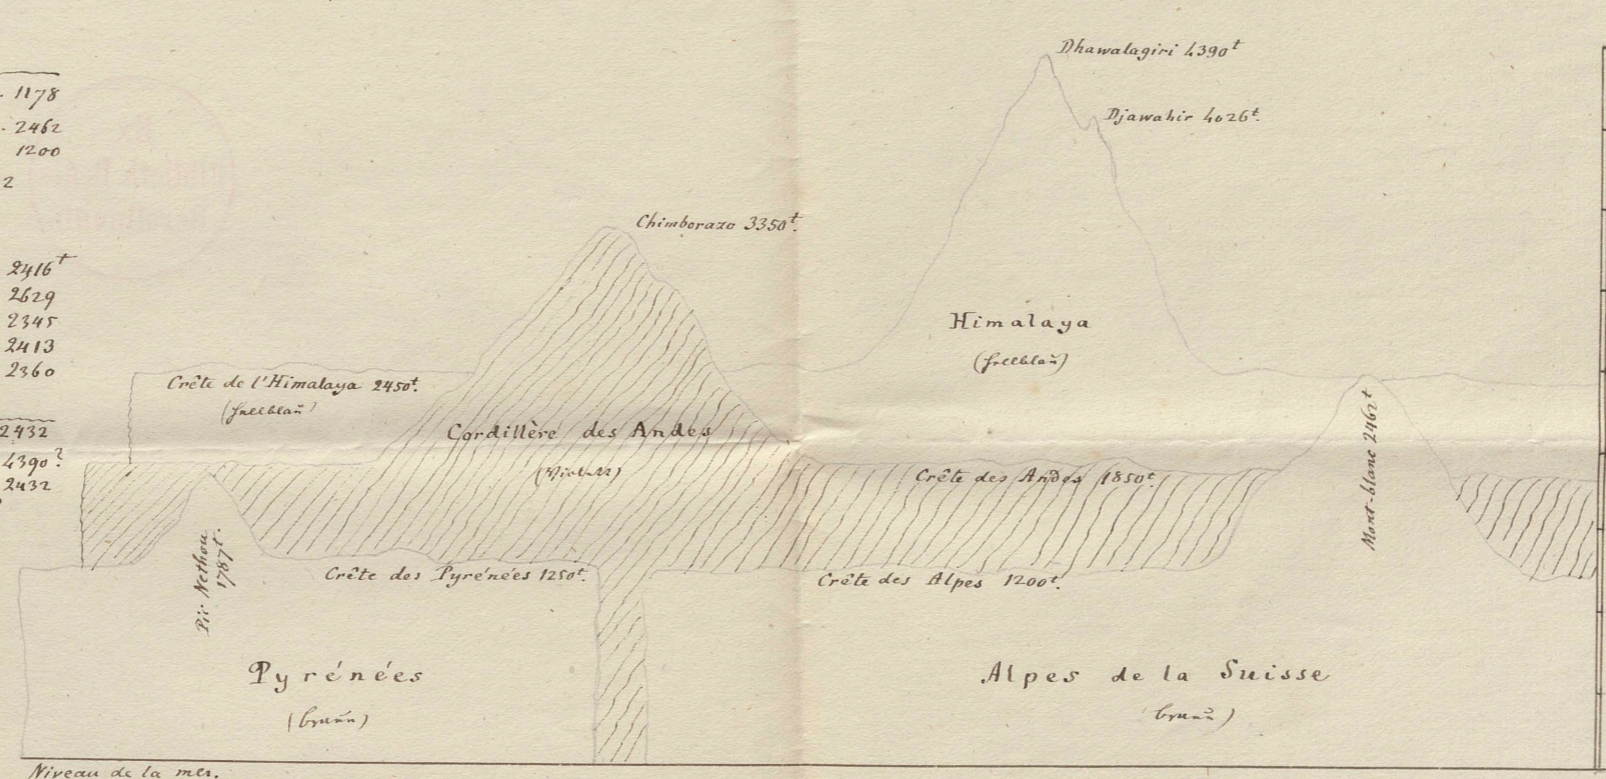 1178
2462
1200
2
2416t
2629
2345
2413
2360
2432
4390?
2432
Dhawalagiri 4390t
Djawahir 4026t.
Chimborazo 3350t.
Himalaya
(hellblau)
Crête de l'Himalaya 2450t.
(hellblau)
Cordillère des Andes
(Violett)
Crête des Andes 1850t.
Mont-blanc 2462t
Pic Nethou
1787t.
Crête des Pyrénées 1250t.
Crête des Alpes 1200t.
Pyrénées
(braun)
Alpes de la Suisse
braun)
Niveau de la mer.